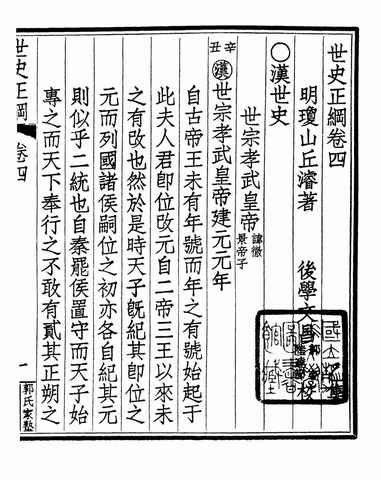 世史正綱卷四
明瓊山丘濬著 後學文昌郭
〇漢世史
世宗孝武皇帝 諱徹景帝子
辛丑 漢世宗孝武皇帝建元元年
自古帝王未有年號而年之有號始起于
此夫人君卽位改元自二帝三王以來未
之有改也然於是時天子既紀其卽位之
元而列國諸侯嗣位之初亦各自紀其元
則似乎二統也自秦罷侯置守而天子始
專之而天下奉行之不敢有貳其正朔之
世史正綱 卷四 一 郭氏家塾